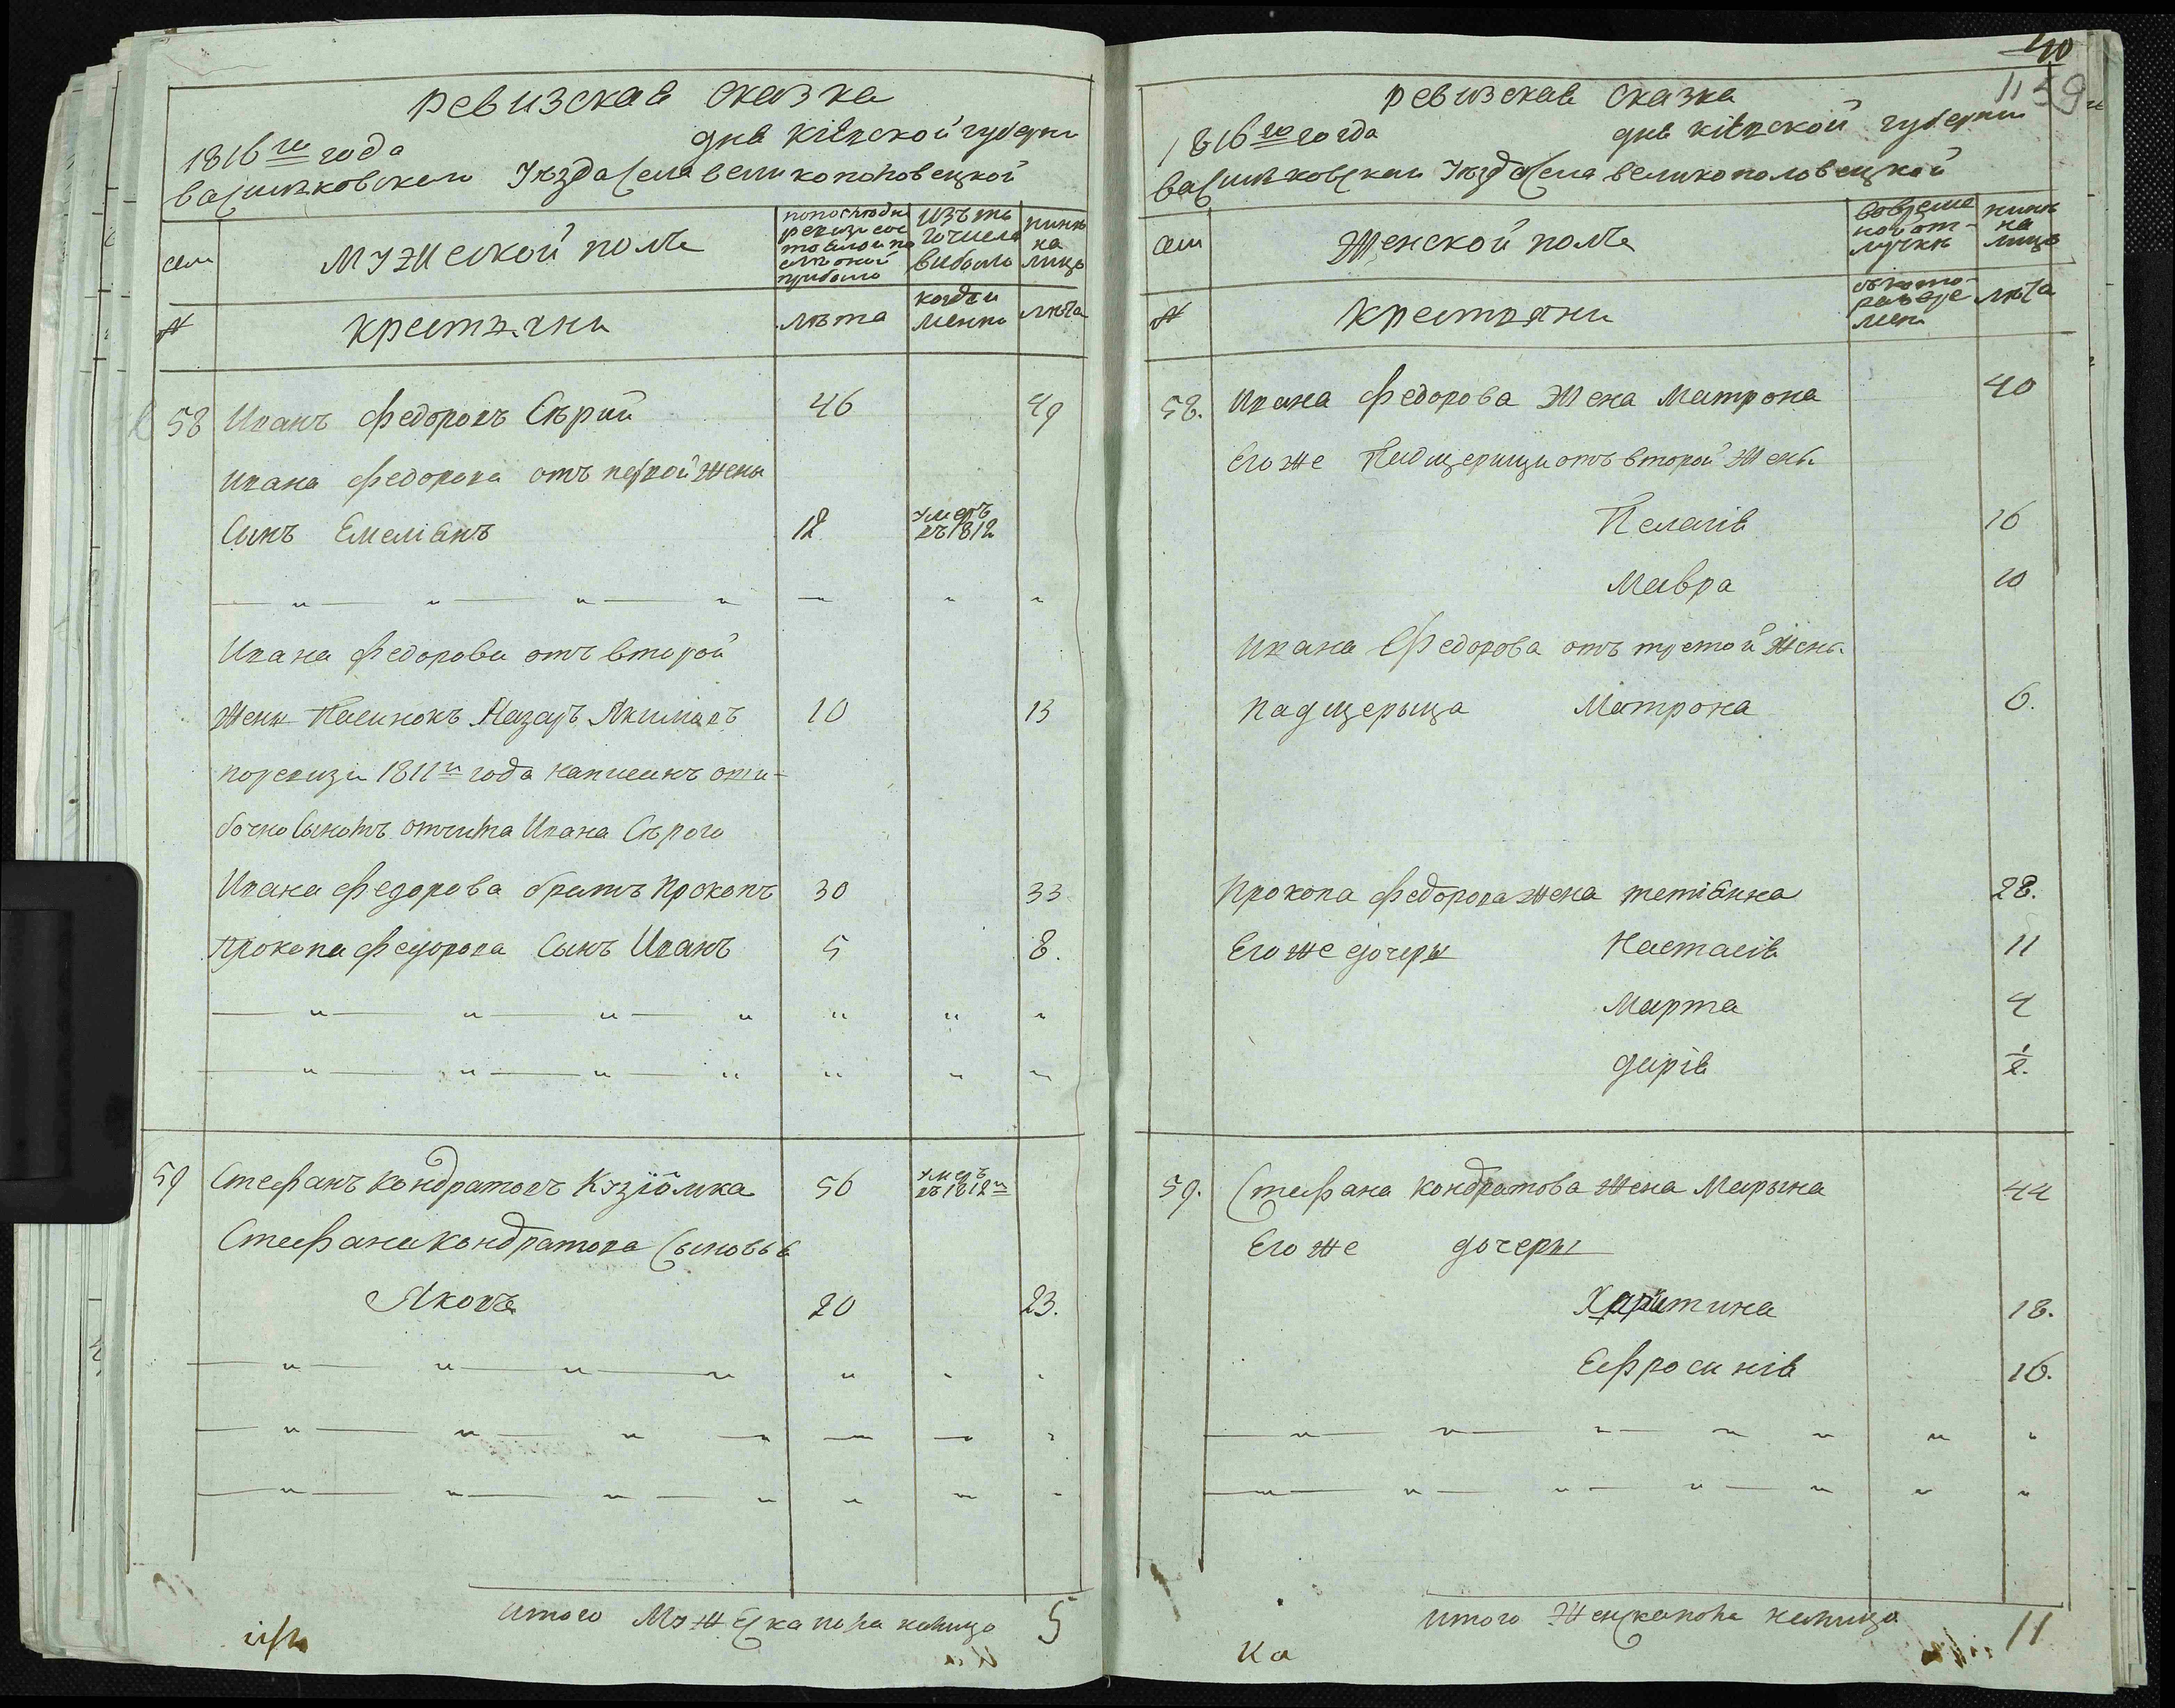 ревизская сказка
1816го года дня кіевской губерни
васильковскаго Уѣзда села великополовецкой
семи
мужеской полъ
попоследней ревизи состояло и по слѣ оной прибыло
изъ то го числа выбыло
нинѣ на лицо
№
крестьяни
лѣта
когда именно
лѣта
58 Иванъ Федоровъ Сѣрий 46 49
Ивана Федорова отъ первой жены
Сынъ Емеліянъ 12 умеръ въ 1812
Ивана Федорова отъ второй
жены Пасинокъ Назаръ Якимовъ 10 13
поревизи 1811й года написанъ оши-
бочно Сыномъ отчима Ивана Сѣрого
Ивана Федорова братъ Прокопъ 30 33
Прокопа Федорова Сынъ Иванъ 5 8.
59 Стефанъ Кондратовъ Кузіомка 56 умеръ въ 1812м
Стефана Кондратова Сыновья
Яковъ 20 23.
итого Мужеска пола налицо 5
40
1159
ревизская Сказка
1816го года дня кіевской губерни
васильковскаго Уѣзда Села великополовецкой
семи
Женской полъ
вовремен ной от- лучкѣ
нинѣ на лицо
№
Крестьяни
съкото- раго вре мени
лѣта
58. Ивана Федорова Жена Матрона 40
Его же Падщерици отъ второй Жены
Пелагія 16
Мавра 10
Ивана Федорова отъ третой Жены
падщерыца Матрона 6.
Прокопа Федорова жена тетіанна 28.
Его же дочеры Настасія 11
Марта 4
дарія 1/2.
59. Стефана Кондратова жена Марына 44
Его же дочеры
Харитина 18.
Ефросинія 16.
итого Женска пола налицо 11
Ка